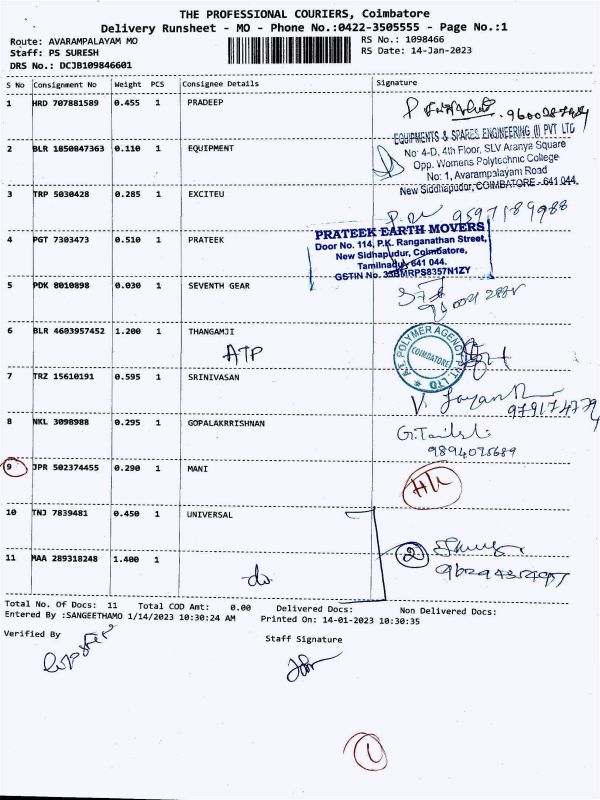 THE PROFESSIONAL COURIERS, Coimbatore
Delivery Runsheet - MO - Phone No.:0422-3505555 - Page No.:1
Route: AVARAMPALAYAM MO
RS No.: 1098466
Staff: PS SURESH
RS Date: 14-Jan-2023
DRS No.: DCJB109846601
S No Consignment No Weight PCS Consignee Details Signature
1 HRD 707881589 0.455 1 PRADEEP
2 BLR 1850847363 0.110 1 EQUIPMENT
EQUIPMENTS & SPARES ENGINEERING (I) PVT LTD
No: 4-D, 4th Floor, SLV Aranya Square
Opp. Womens Polytechnic College
No: 1, Avarampalayam Road
New Siddhapudur, COIMBATORE - 641 044.
3 TRP 5030428 0.285 1 EXCITEU
9597189988
4 PGT 7303473 0.510 1 PRATEEK
PRATEEK EARTH MOVERS
Door No. 114, P.K. Ranganathan Street,
New Sidhapudur, Coimbatore,
Tamilnadu, 641 044.
GSTIN No. 33BMRPS8357N1ZY
5 PDK 8010898 0.030 1 SEVENTH GEAR
6 BLR 4603957452 1.200 1 THANGAMJI
ATP
A.T. POLYMER AGENCY PVT. LTD
COIMBATORE
7 TRZ 15610191 0.595 1 SRINIVASAN
8 NKL 3098988 0.295 1 GOPALAKRRISHNAN
9894075689
9 JPR 502374455 0.290 1 MANI
10 TNJ 7839481 0.450 1 UNIVERSAL
2
11 MAA 289318248 1.400 1
do
Total No. Of Docs: 11 Total COD Amt: 0.00 Delivered Docs: Non Delivered Docs:
Entered By :SANGEETHAMO 1/14/2023 10:30:24 AM Printed On: 14-01-2023 10:30:35
Verified By
Staff Signature
1